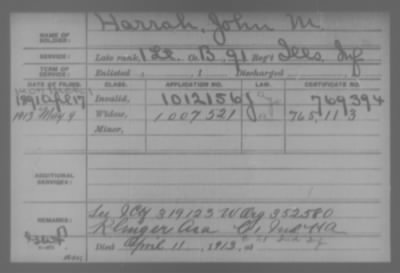 NAME OF SOLDIER: Harrah, John M.
SERVICE: Late rank, Co. B, 91 Reg't Ills. Inf
TERM OF SERVICE: Enlisted , 1 Discharged
DATE OF FILING. CLASS. APPLICATION NO. LAW. CERTIFICATE NO.
1891 Apl 17 Invalid, 1012156 769394
1913 May 9 Widow, 1007521 765113
Minor,
ADDITIONAL SERVICES:
REMARKS: 319123 W Org 352580
Klinger Asa
Died April 11, 1913,